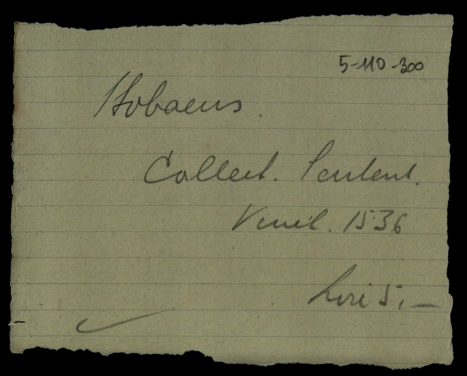 5-110-300
Stobaeus.
Collect. Sentent.
Venet. 1536
Lire 5.—